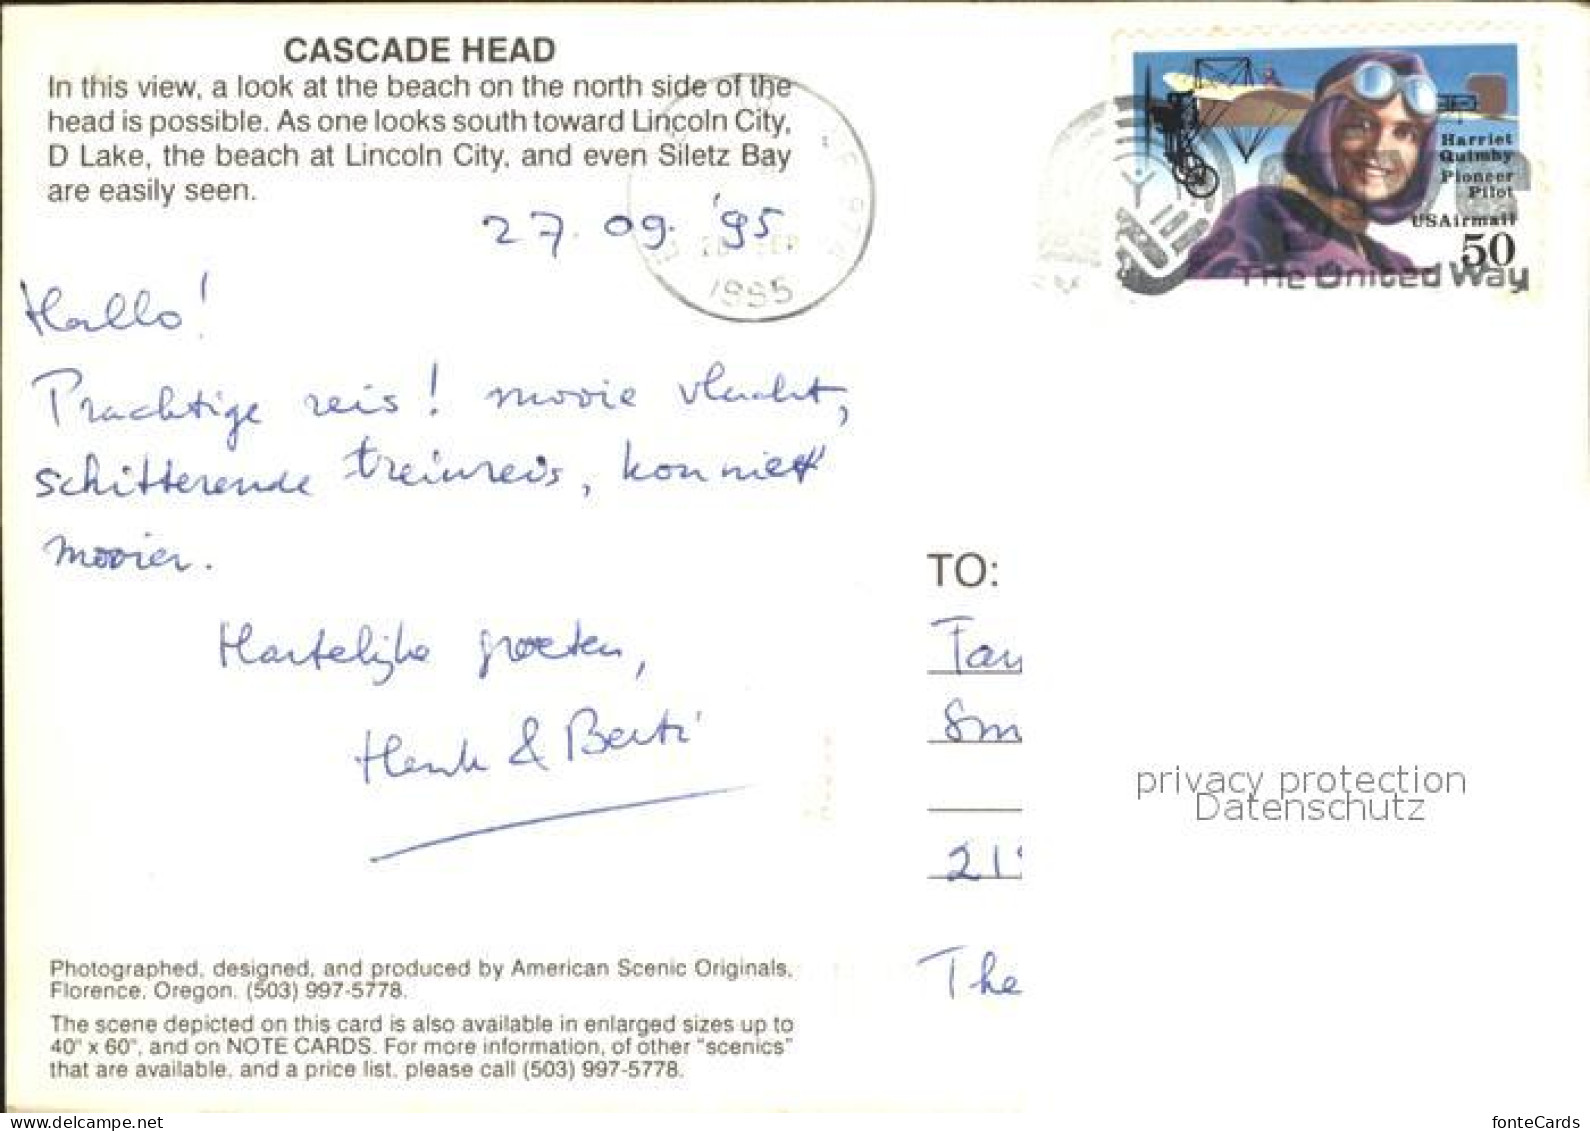 CASCADE HEAD
In this view, a look at the beach on the north side of the
head is possible. As one looks south toward Lincoln City,
D Lake, the beach at Lincoln City, and even Siletz Bay
are easily seen.
27. 09. '95
1995
Harriet
Quimby
Pioneer
Pilot
USAirmail
50
The United Way
Hallo!
Prachtige reis! mooie vlucht,
schitterende treinreis, kon niet
mooier.
Hartelijke groeten,
Henk & Berti
TO:
Fam
Sm
21
The
privacy protection
Datenschutz
Photographed, designed, and produced by American Scenic Originals,
Florence, Oregon. (503) 997-5778.
The scene depicted on this card is also available in enlarged sizes up to
40" x 60", and on NOTE CARDS. For more information, of other "scenics"
that are available, and a price list, please call (503) 997-5778.
delcampe.net
fonteCards